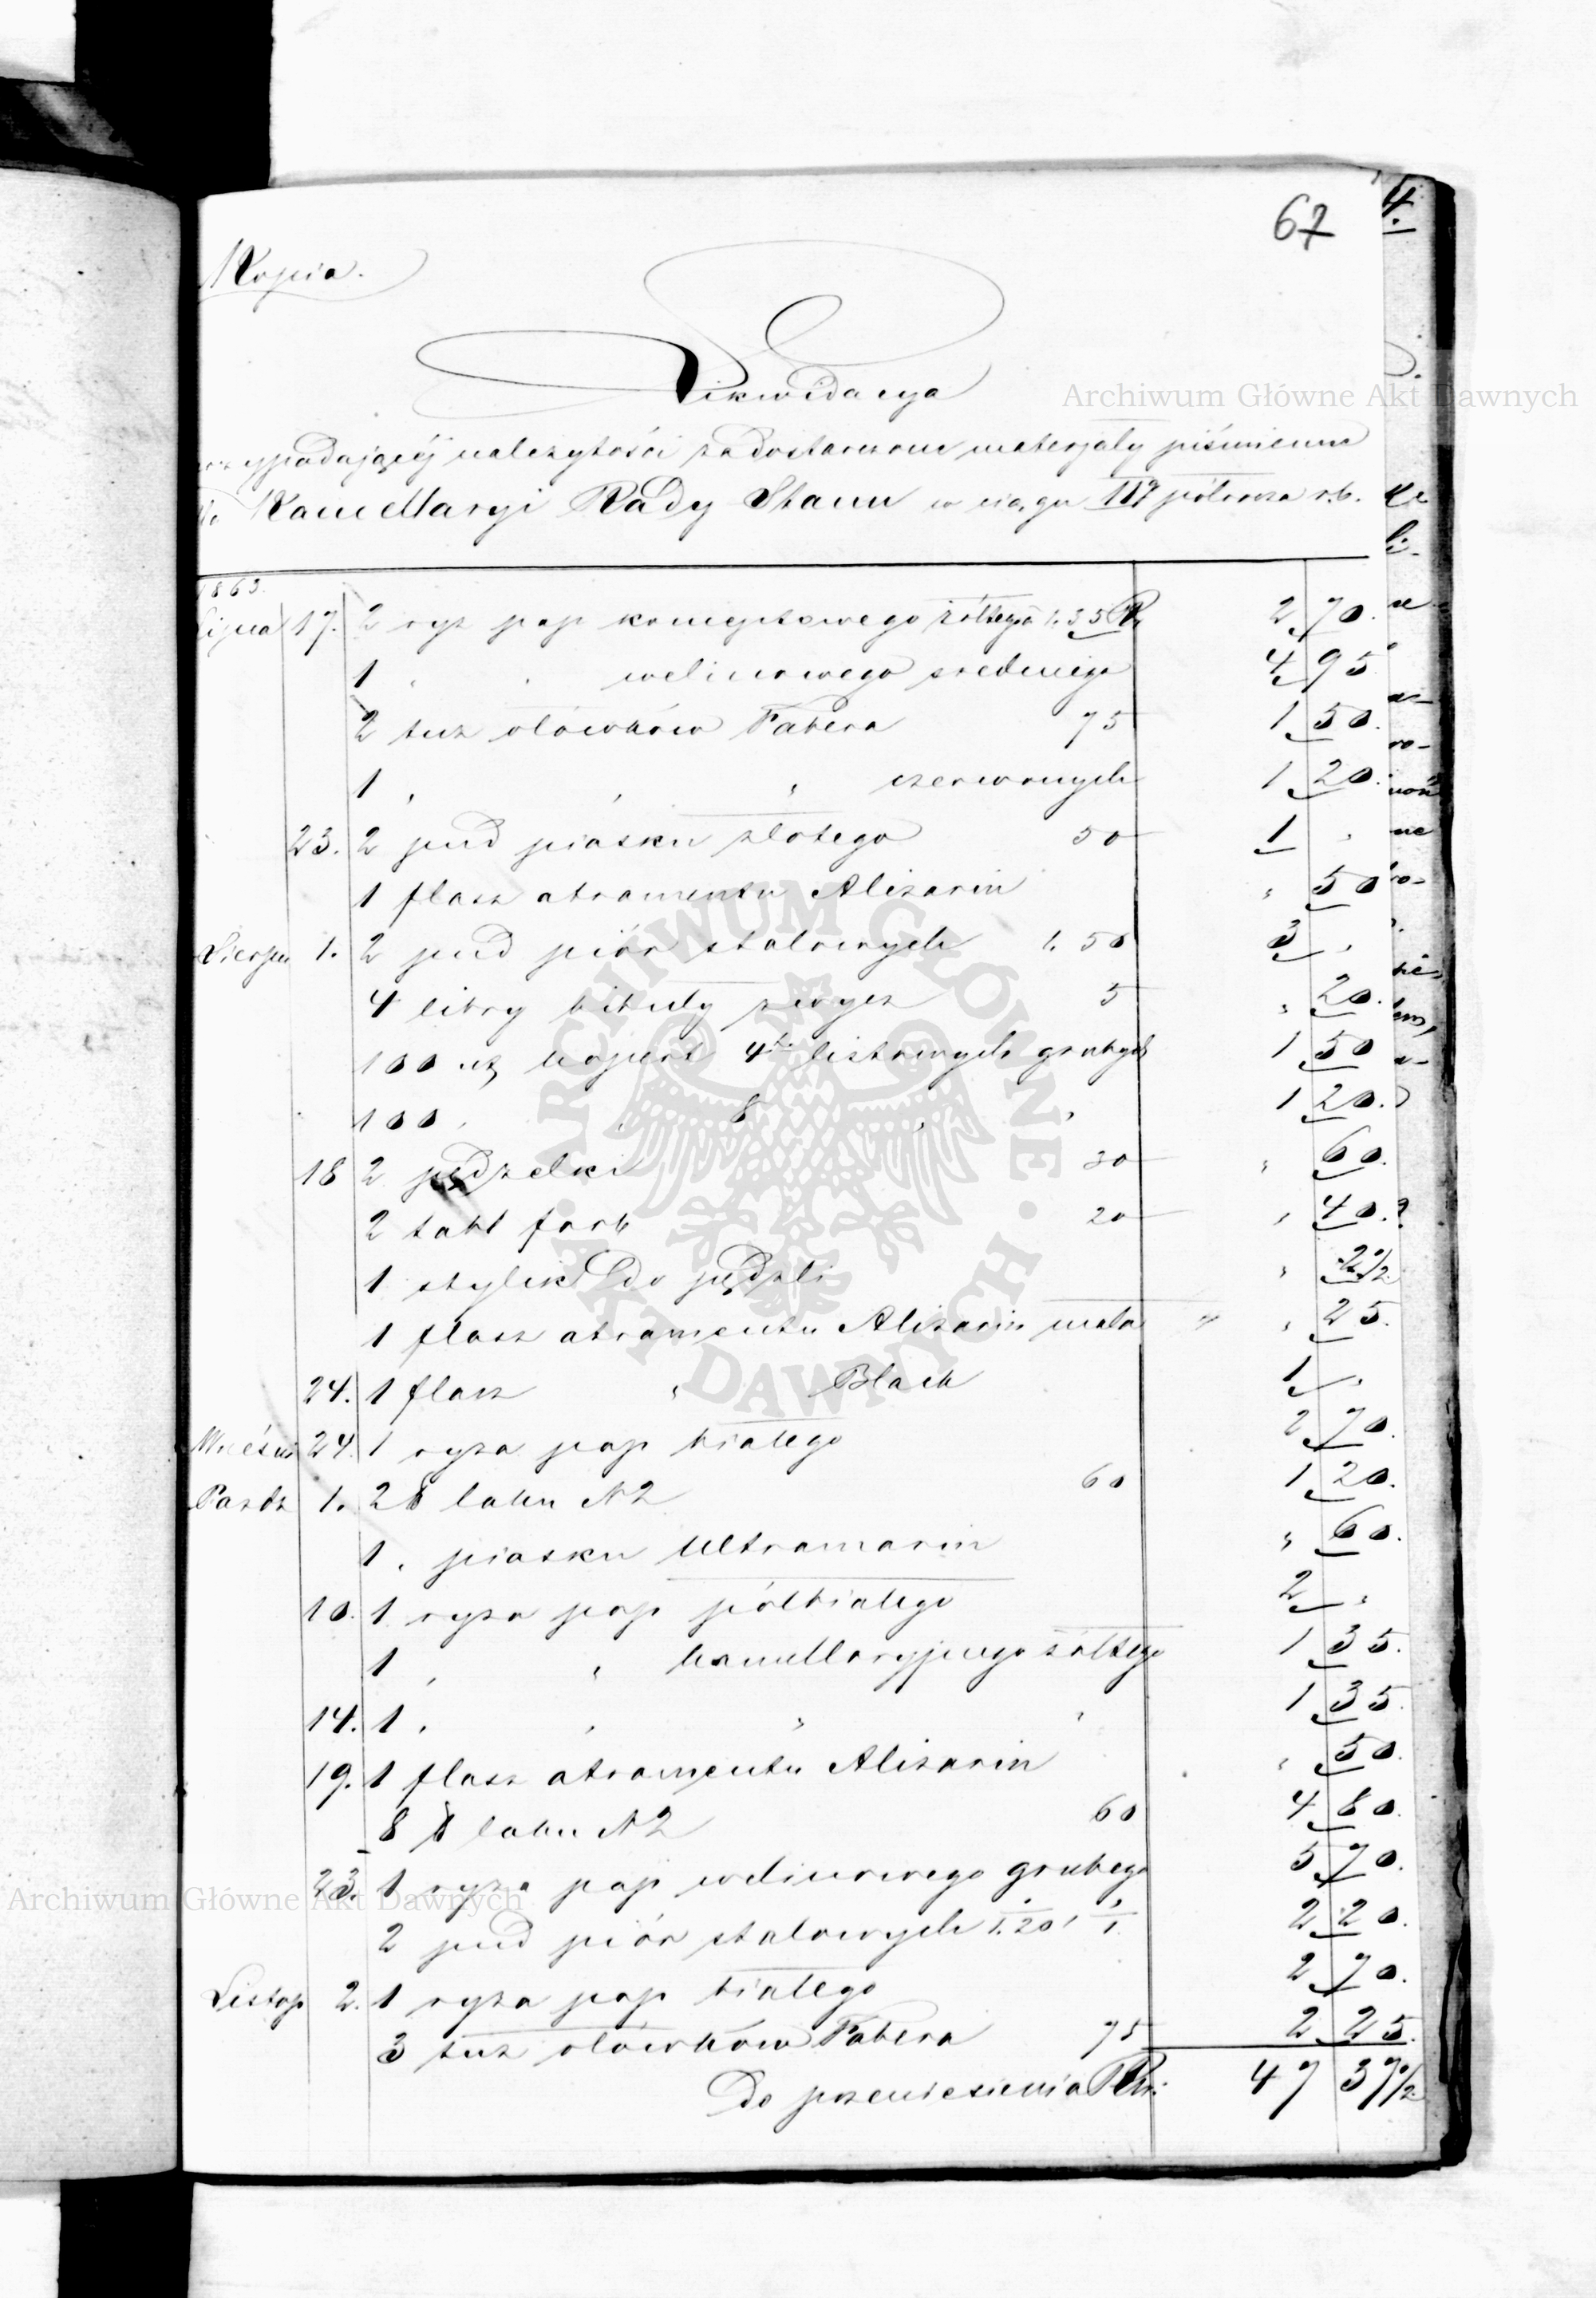 67
4.
Kopia.
Likwidacya
przypadającéj należytości za dostarczone materjały piśmienne
do Kancellaryi Rady Stanu w ciągu IIgo półrocza r.b.
1863.
Lipca 17. 2 ryz pap konceptowego żółtego 1.35 R. 2 70.
1 " " welinowego średniego 4 95
2 tuz ołówków Fabera 75 1 50.
1 " " " czerwonych 1 20.
23. 2 pud piasku złotego 50 1 "
1 flasz atramentu Alizarin " 50
Sierpn 1. 2 pud piór stalowych 1.50 3 "
4 libry bibuły zwycz 5 " 20.
100 szt kopert 4to listowych grubych 1 50
100 " " 8 " " 1 20.
18 2 pędzelki 30 " 60.
2 tabl farb 20 " 40.
1 stylik do pędzli " 2 1/2
1 flasz atramentu Alizarin mała " 25.
24. 1 flasz " Black 1 "
Wrześn 24. 1 ryza pap białego 2 70.
Paźdz 1. 2 ℔ laku N2 60 1 20.
1 " piasku Ultramarin " 60.
10. 1 ryza pap półbiałego 2 "
1 " " kancellaryjnego żółtego 1 35.
14. 1 " " " " 1 35.
19. 1 flasz atramentu Alizarin " 50.
8 ℔ laku N2 60 4 80.
23. 1 ryza pap welinowego grubego 5 70.
2 pud piór stalowych 1.20 1/1. 2 20.
Listop 2. 1 ryza pap białego 2 70.
3 tuz ołówków Fabera 75 2 25.
Do przeniesienia Rsr: 47 37 1/2
Archiwum Główne Akt Dawnych
ARCHIWUM GŁÓWNE AKT DAWNYCH
Archiwum Główne Akt Dawnych